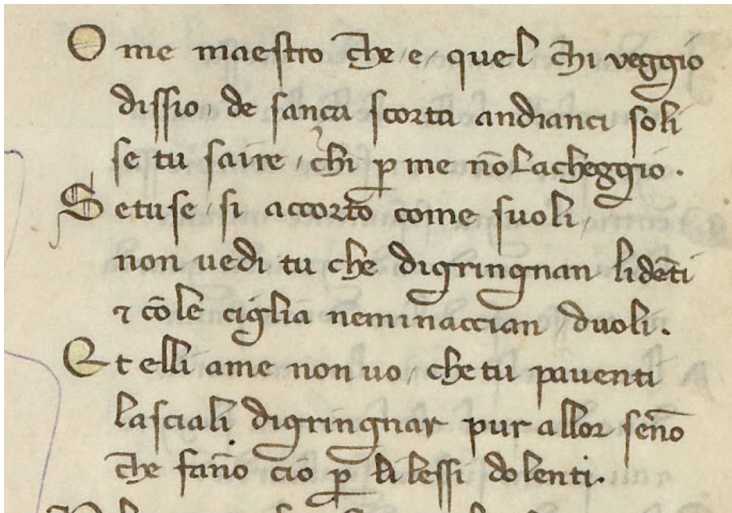 O me maestro che / e / quel chi veggio
dissio, de sança scorta andianci soli
se tu saire / chi p̱ me nõ la cheggio.
S etuse / si accorto come suoli,
non uedi tu che digringnan li dẽti
⁊ cõ le ciglia neminaccian duoli.
Et elli ame non uo / che tu pauenti
lasciali digringnar pur allor sẽno
che fãno cio p̱ li lessi dolenti.